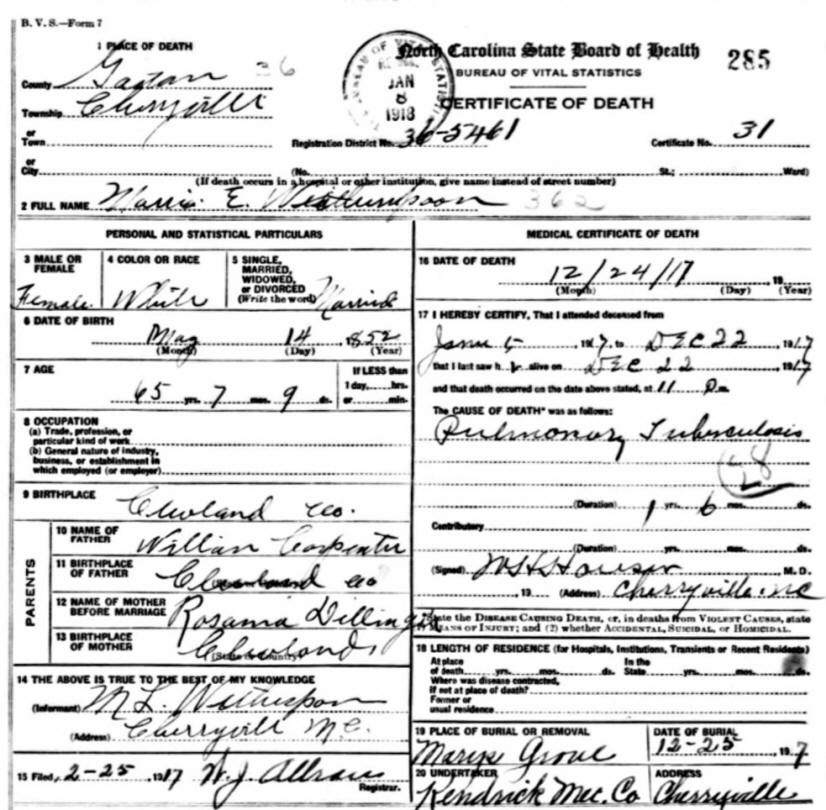 B. V. S.—Form 7
North Carolina State Board of Health
BUREAU OF VITAL STATISTICS
CERTIFICATE OF DEATH
285
JAN
8
1918
1 PLACE OF DEATH
County Gaston 36
Township Cherryville
or
Town
or
City
Registration District No. 36-5461
Certificate No. 31
(No. St.; Ward)
(If death occurs in a hospital or other institution, give name instead of street number)
2 FULL NAME E. 362
PERSONAL AND STATISTICAL PARTICULARS
3 MALE OR FEMALE
Female
4 COLOR OR RACE
White
5 SINGLE, MARRIED, WIDOWED, or DIVORCED
(Write the word) Married
6 DATE OF BIRTH
May 14 1852
(Month) (Day) (Year)
7 AGE
65 yrs. 7 mos. 9 ds.
If LESS than
1 day, hrs.
or min.
8 OCCUPATION
(a) Trade, profession, or
particular kind of work
(b) General nature of industry,
business, or establishment in
which employed (or employer)
9 BIRTHPLACE
Clevland Co.
PARENTS
10 NAME OF FATHER
William Carpenter
11 BIRTHPLACE OF FATHER
Co
12 NAME OF MOTHER BEFORE MARRIAGE
13 BIRTHPLACE OF MOTHER
14 THE ABOVE IS TRUE TO THE BEST OF MY KNOWLEDGE
(Informant) M L
(Address) Cherryvill N C.
15 Filed, 2-25, 1917 W. J.
Registrar.
MEDICAL CERTIFICATE OF DEATH
16 DATE OF DEATH
12/24/17 19
(Month) (Day) (Year)
17 I HEREBY CERTIFY, That I attended deceased from
1917, to DEC 22 1917
that I last saw h alive on DEC 22 1917
and that death occurred on the date above stated, at 11 P m.
The CAUSE OF DEATH* was as follows:
Pulmonary Tuberculosis
28
(Duration) 1 yrs. 6 mos. ds.
Contributory
(Duration) yrs. mos. ds.
(Signed) Houser M. D.
, 19 (Address) Cherryville, NC
State the DISEASE CAUSING DEATH, or, in deaths from VIOLENT CAUSES, state
MEANS OF INJURY; and (2) whether ACCIDENTAL, SUICIDAL, or HOMICIDAL.
18 LENGTH OF RESIDENCE (for Hospitals, Institutions, Transients or Recent Residents)
At place In the
of death yrs. mos. ds. State yrs. mos. ds.
Where was disease contracted,
if not at place of death?
Former or
usual residence
19 PLACE OF BURIAL OR REMOVAL
Marys Grove
DATE OF BURIAL
12-25 1917
20 UNDERTAKER
Kendrick Mec. Co
ADDRESS
Cherryville